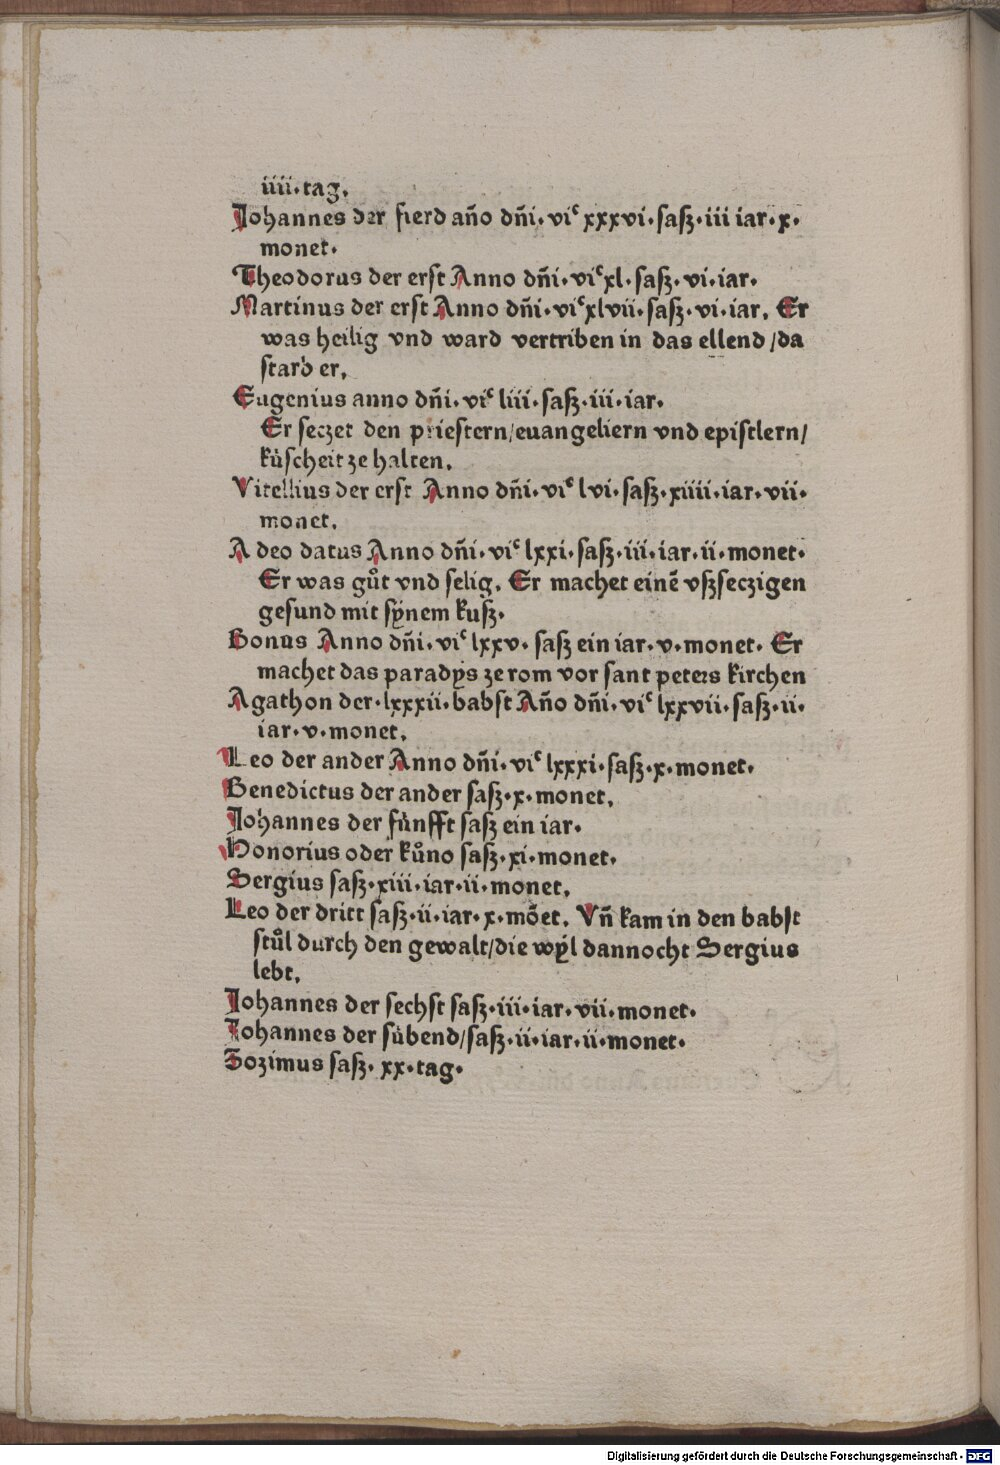 iiii·tag.
Johannes der fierd año dñi·viᶜ xxxvi·ſaſʒ·iii iar·x·
monet·
Theodorus der erſt Anno dñi·viᶜxl·ſaſʒ·vi·iar·
Martinus der erſt Anno dñi·viᶜxlvii·ſaſʒ·vi·iar. Er
was heilig vnd ward vertriben in das ellend/da
ſtarb er.
Eugenius anno dñi·viᶜ liii·ſaſʒ·iii·iar·
Er ſeczet den prieſtern/euangeliern vnd epiſtlern/
kùſcheit ze halten.
Vitellius der erſt Anno dñi·viᶜ lvi·ſaſʒ·xiiii·iar·vii·
monet.
A deo datus Anno dñi·viᶜ lxxi·ſaſʒ·iii·iar·ii·monet·
Er was gůt vnd ſelig. Er machet einē vſʒſeczigen
geſund mit ſÿnem kuſʒ·
Bonus Anno dñi·viᶜ lxxv·ſaſʒ ein iar·v·monet· Er
machet das paradÿs ze rom vor ſant peters kirchen
Agathon der·lxxxii·babſt Año dñi·viᶜ lxxvii·ſaſʒ·ii·
iar·v·monet.
Leo der ander Anno dñi·viᶜ lxxxi·ſaſʒ·x·monet·
Benedictus der ander ſaſʒ·x·monet.
Johannes der fùnfft ſaſʒ ein iar·
Honorius oder kůno ſaſʒ·xi·monet·
Sergius ſaſʒ·xiii·iar·ii·monet.
Leo der dritt ſaſʒ·ii·iar·x·mōet. Vñ kam in den babſt
ſtůl durch den gewalt/die wÿl dannocht Sergius
lebt.
Johannes der ſechſt ſaſʒ·iii·iar·vii·monet·
Johannes der ſùbend/ſaſʒ·ii·iar·ii·monet·
Zozimus ſaſʒ·xx·tag·
Digitalisierung gefördert durch die Deutsche Forschungsgemeinschaft - DFG